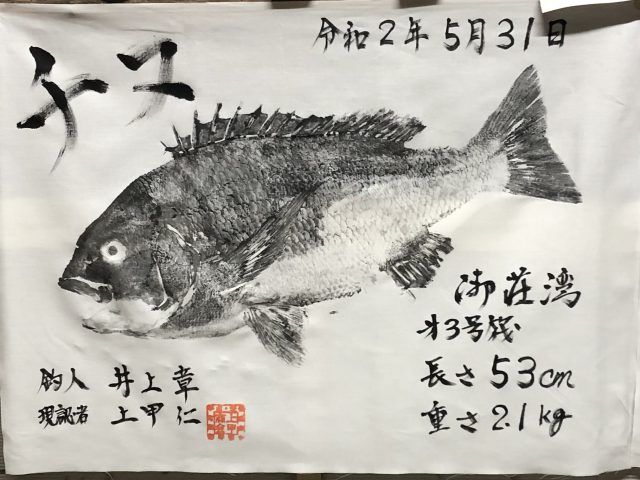 令和2年5月31日
チヌ
御荘湾
才3号筏
長さ53cm
重さ2.1kg
釣人 井上章
現認者 上甲仁